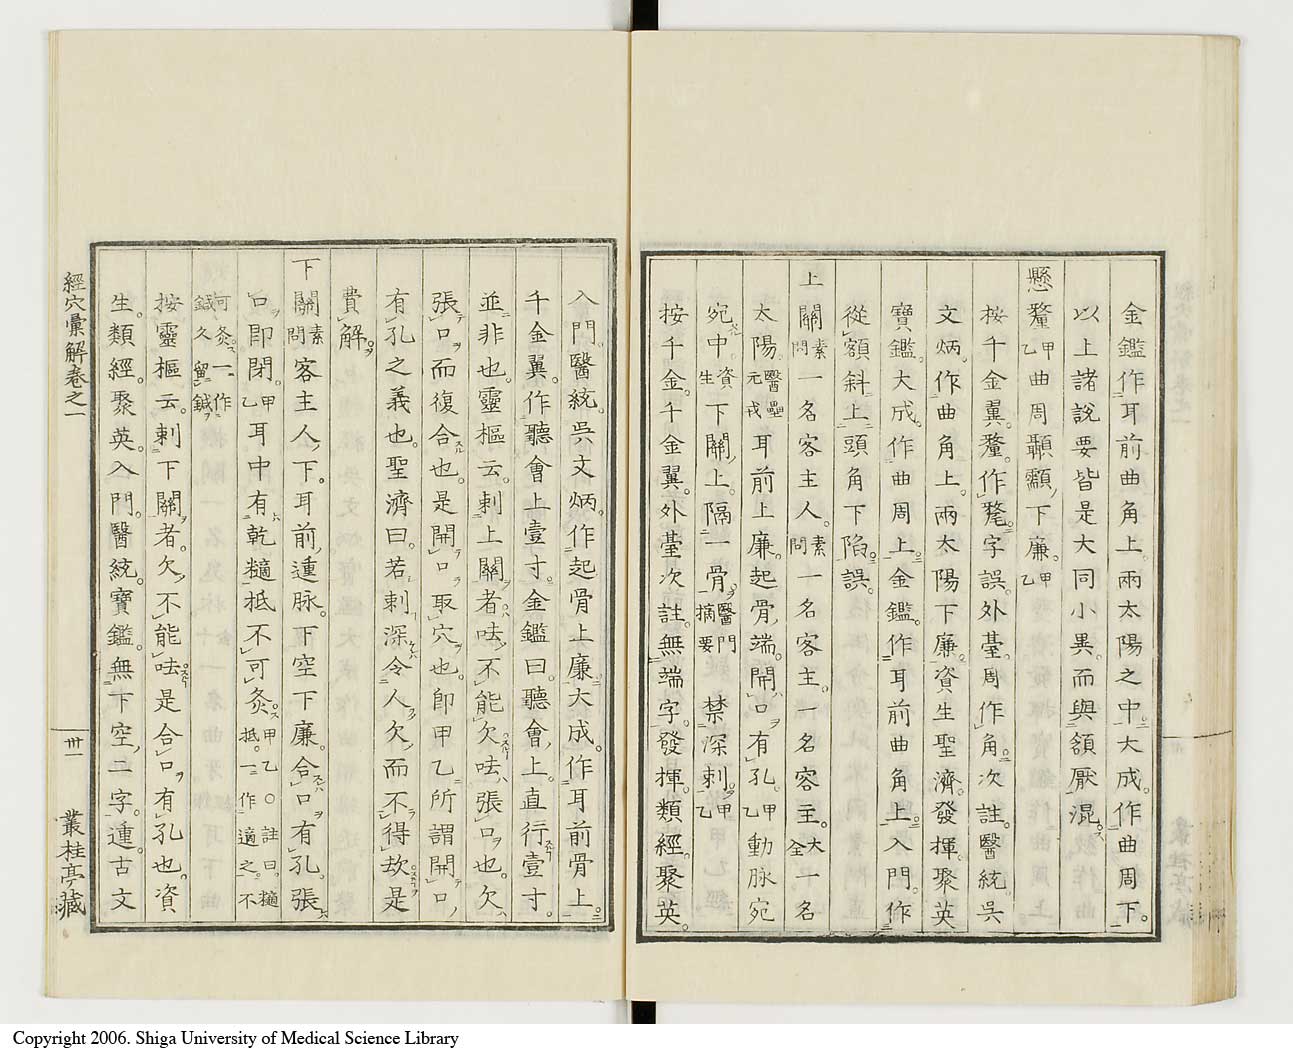 金鑑作耳前曲角上兩太陽之中大成作曲周下
以上諸説要皆是大同小異而與頷厭混
懸釐甲乙曲周顳顬下廉甲乙
按千金翼釐作氂字誤外臺周作角次註醫統吳
文炳作曲角上兩太陽下廉資生聖濟發揮聚英
寶鑑大成作曲周上金鑑作耳前曲角上入門作
從額斜上頭角下陷誤
上關素問一名客主人素問一名客主一名容主大全一名
太陽醫壘元戎耳前上廉起骨端開口有孔甲乙動脉宛
宛中資生下關上隔一骨醫門摘要禁深刺甲乙
按千金千金翼外臺次註無端字發揮類經聚英
入門醫統吳文炳作起骨上廉大成作耳前骨上
千金翼作聽會上壹寸金鑑曰聽會上直行壹寸
並非也靈樞云刺上關者呿不能欠呿張口也欠
張口而復合也是開口取穴也卽甲乙所謂開口
有孔之義也聖濟曰若刺深令人欠而不得欬是
費解
下關素問客主人下耳前動脉下空下廉合口有孔張
口卽閉甲乙耳中有乾糆抵不可灸甲乙○註曰糆抵一作適之不
可灸一作鍼久留鍼
按靈樞云刺下關者欠不能呿是合口有孔也資
生類經聚英入門醫統寶鑑無下空二字動古文
經穴彙解卷之一
卅一
叢桂亭藏
Copyright 2006. Shiga University of Medical Science Library